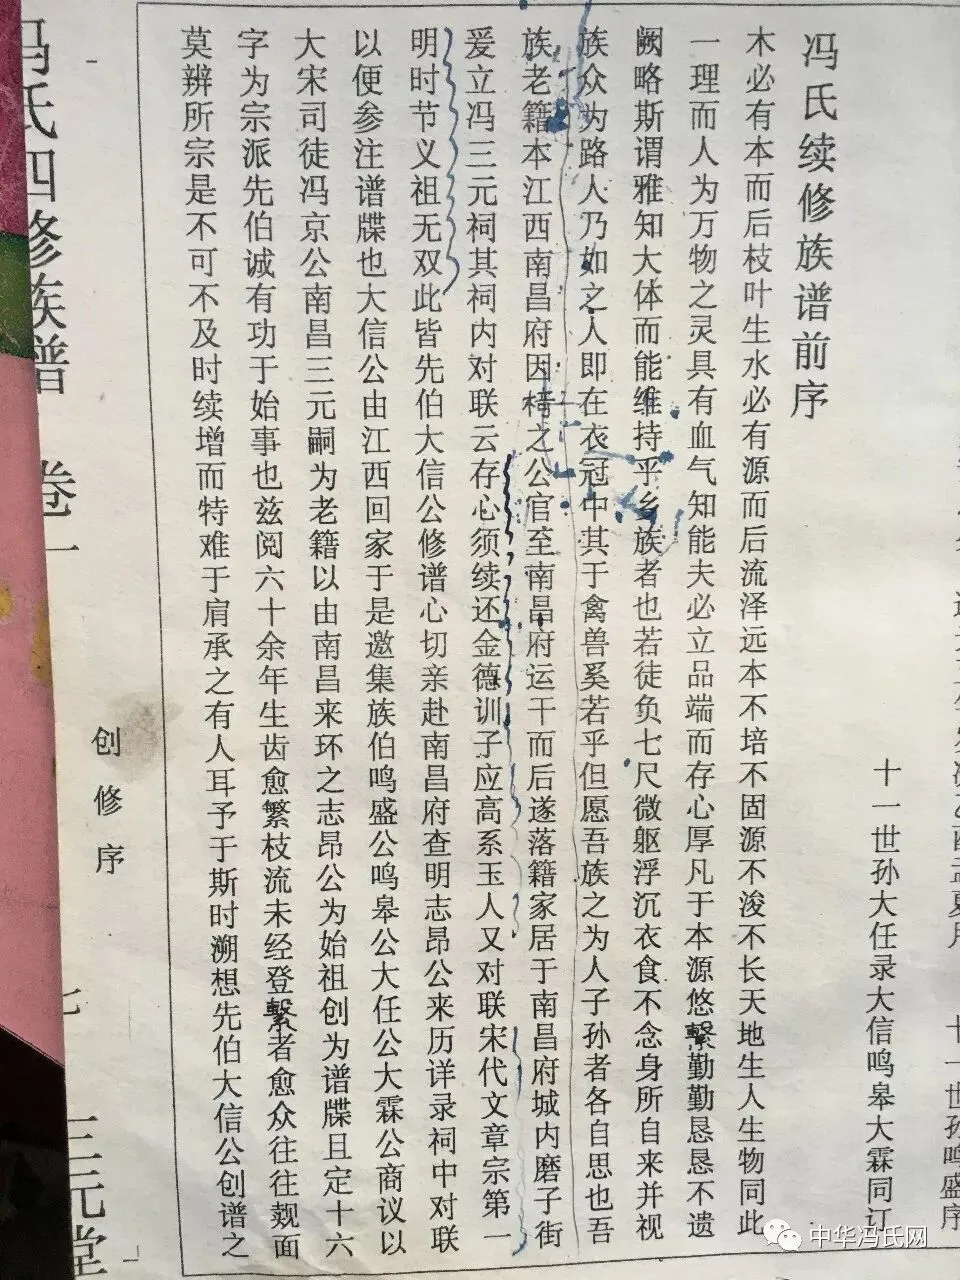 十一世孙鸣盛序
十一世孙大任录大信鸣皋大霖同订
冯氏续修族谱前序
木必有本而后枝叶生水必有源而后流泽远本不培不固源不浚不长天地生人生物同此
一理而人为万物之灵具有血气知能夫必立品端而存心厚凡于本源悠繫勤勤恳恳不遗
阙略斯谓雅知大体而能维持乎乡族者也若徒负七尺微躯浮沉衣食不念身所自来并视
族众为路人乃如之人即在衣冠中其于禽兽奚若乎但愿吾族之为人子孙者各自思也吾
族老籍本江西南昌府因楮之公官至南昌府运干而后遂落籍家居于南昌府城内磨子街
爰立冯三元祠其祠内对联云存心须续还金德训子应高系玉人又对联宋代文章宗第一
明时节义祖无双此皆先伯大信公修谱心切亲赴南昌府查明志昂公来历详录祠中对联
以便参注谱牒也大信公由江西回家于是邀集族伯鸣盛公鸣皋公大任公大霖公商议以
大宋司徒冯京公南昌三元嗣为老籍以由南昌来环之志昂公为始祖创为谱牒且定十六
字为宗派先伯诚有功于始事也兹阅六十余年生齿愈繁枝流未经登繫者愈众往往觌面
莫辨所宗是不可不及时续增而特难于肩承之有人耳予于斯时溯想先伯大信公创谱之
创修序
七
冯氏四修族谱 卷一
三元堂
中华冯氏网